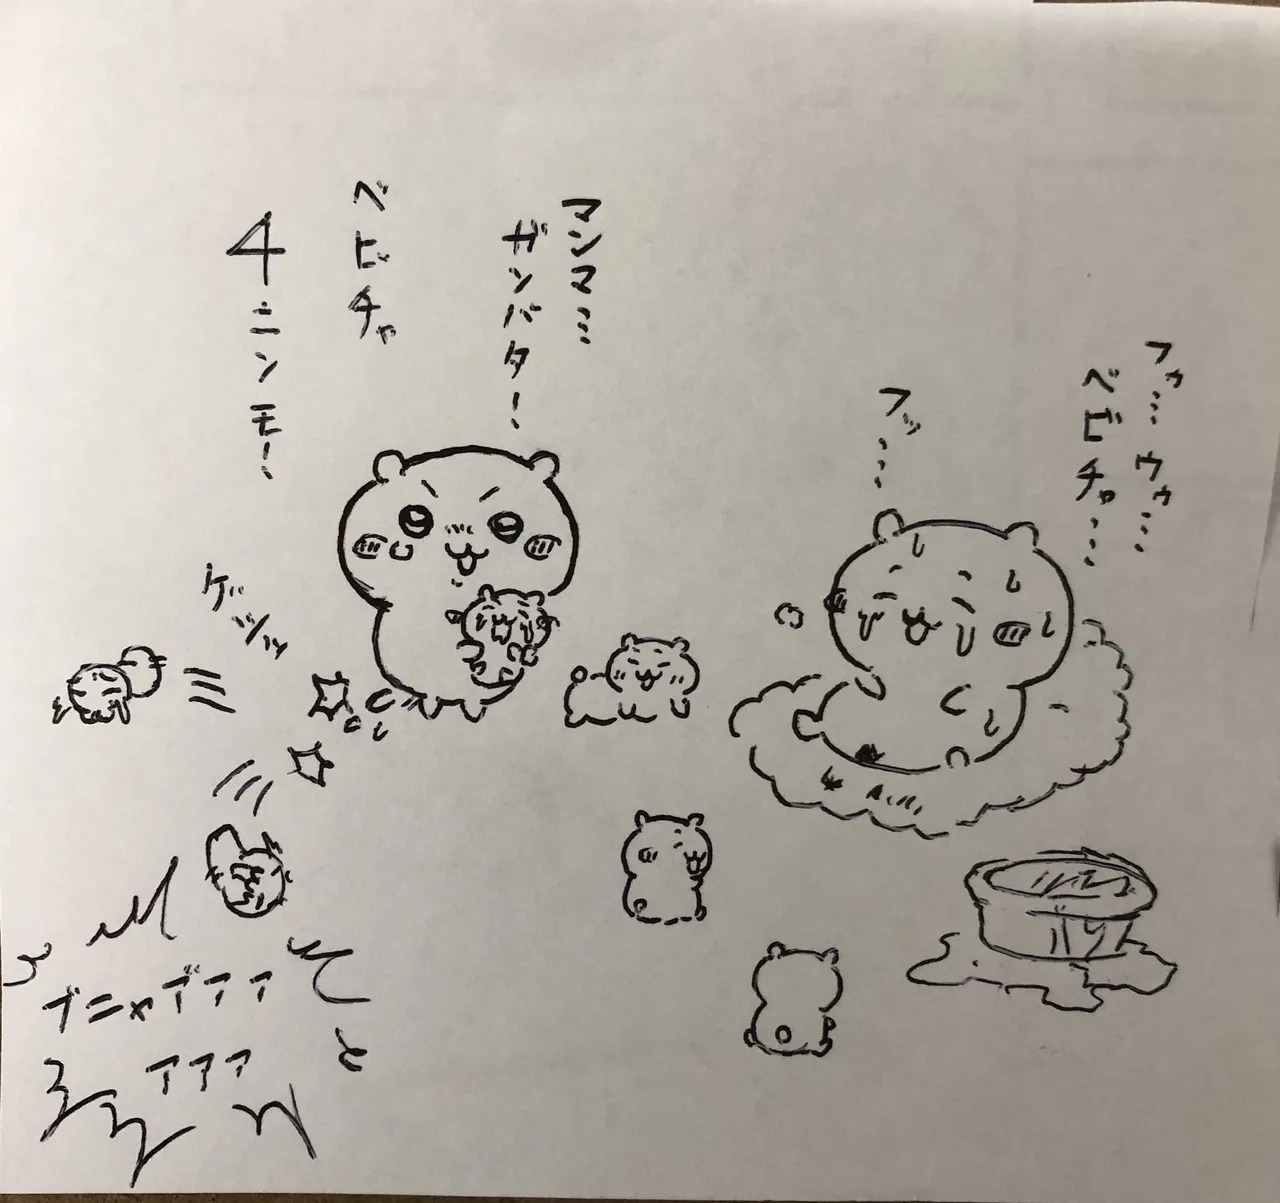 フゥ…ウゥ…
ベビチャ…
フッ…
マンマ…
ガンバター!
ベビチャ
4ニンモ!
ゲッッ
ブニャアアア
アアア